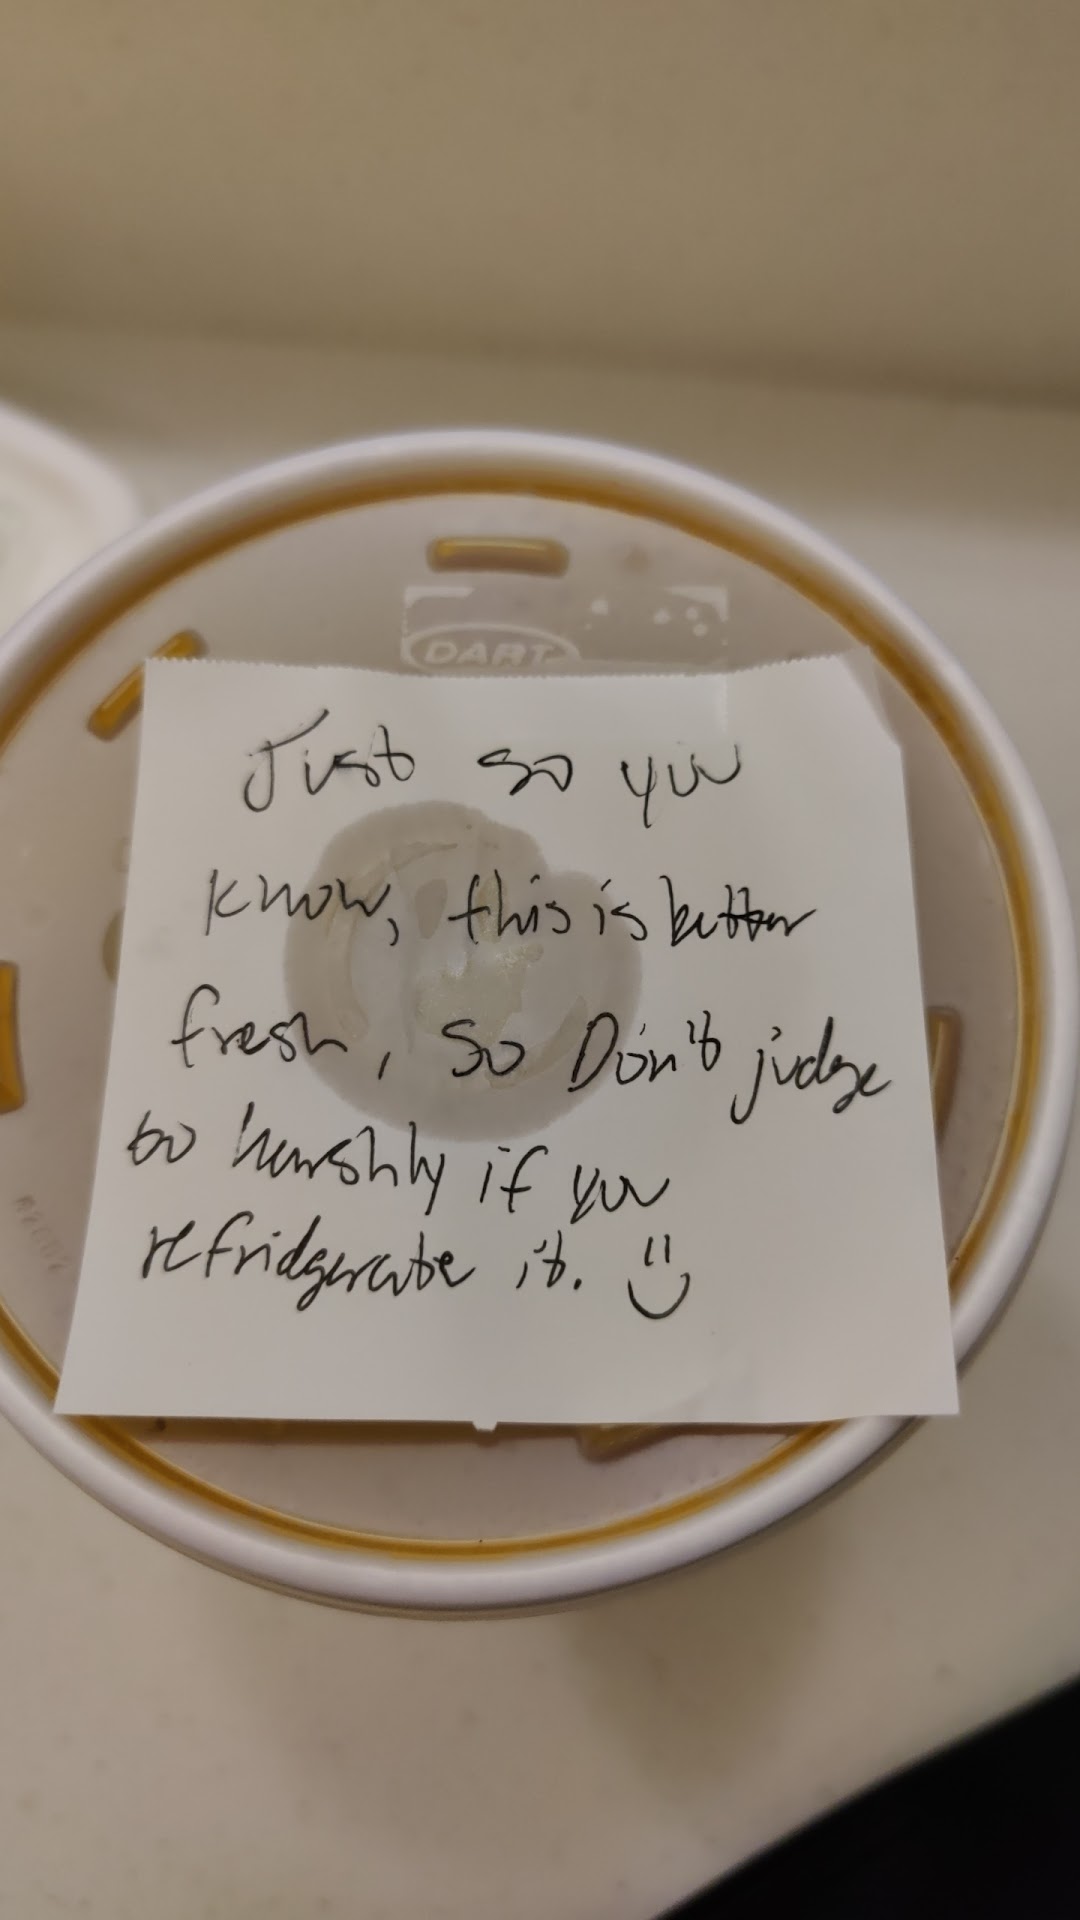 DART
Just so you
know, this is better
fresh, so Don't judge
too harshly if you
refridgerate it. :)